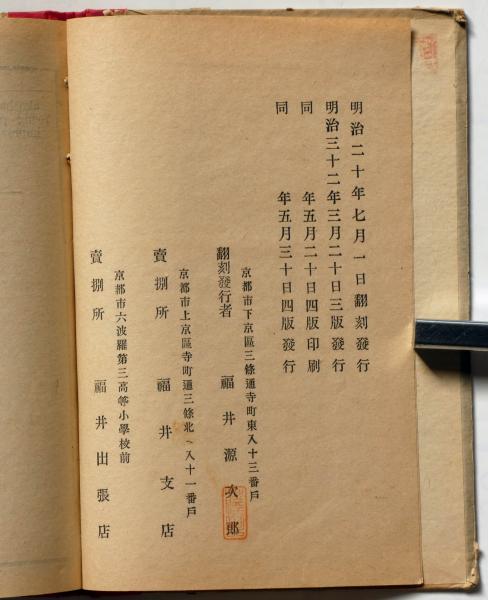 明治二十年七月一日翻刻發行
明治三十二年三月二十日三版發行
同　年五月二十日四版印刷
同　年五月三十日四版發行
京都市下京區三條通寺町東入十三番戶
翻刻發行者　福井源次郎
京都市上京區寺町通三條北ヘ入十一番戶
賣捌所　福井支店
京都市六波羅第三高等小學校前
賣捌所　福井出張店